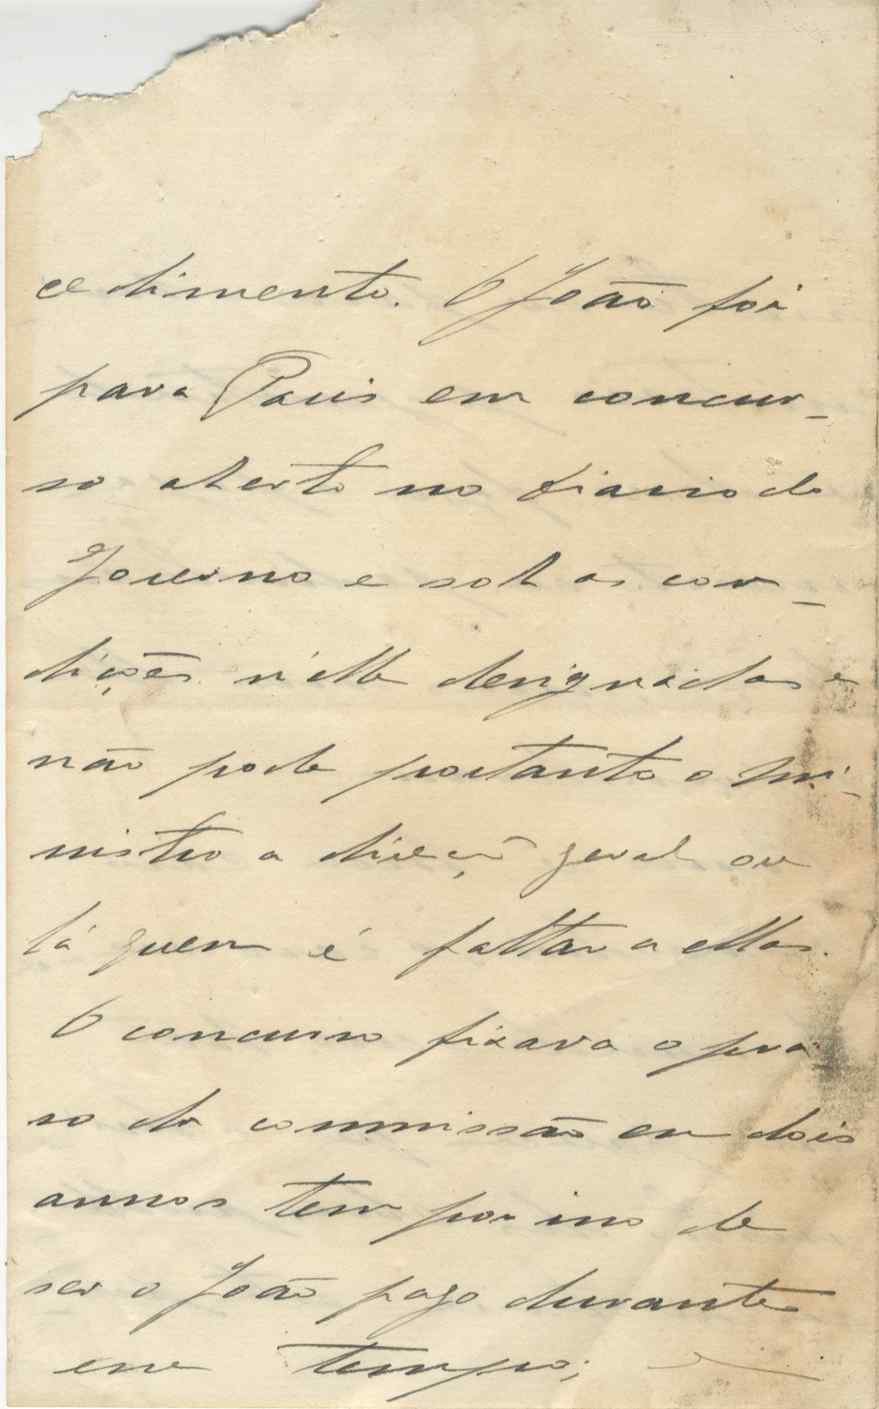 cedimento. O João foi
para Paris em concur-
so aberto no Diario do
Governo e sob as con-
dições n'elle designadas e
não pode portanto o Mi-
nistro a direcção geral ou
lá quem é faltar a ellas.
O concurso fixava o pra-
so da commissão em dois
annos tem por isso de
ser o João pago durante
esse tempo;